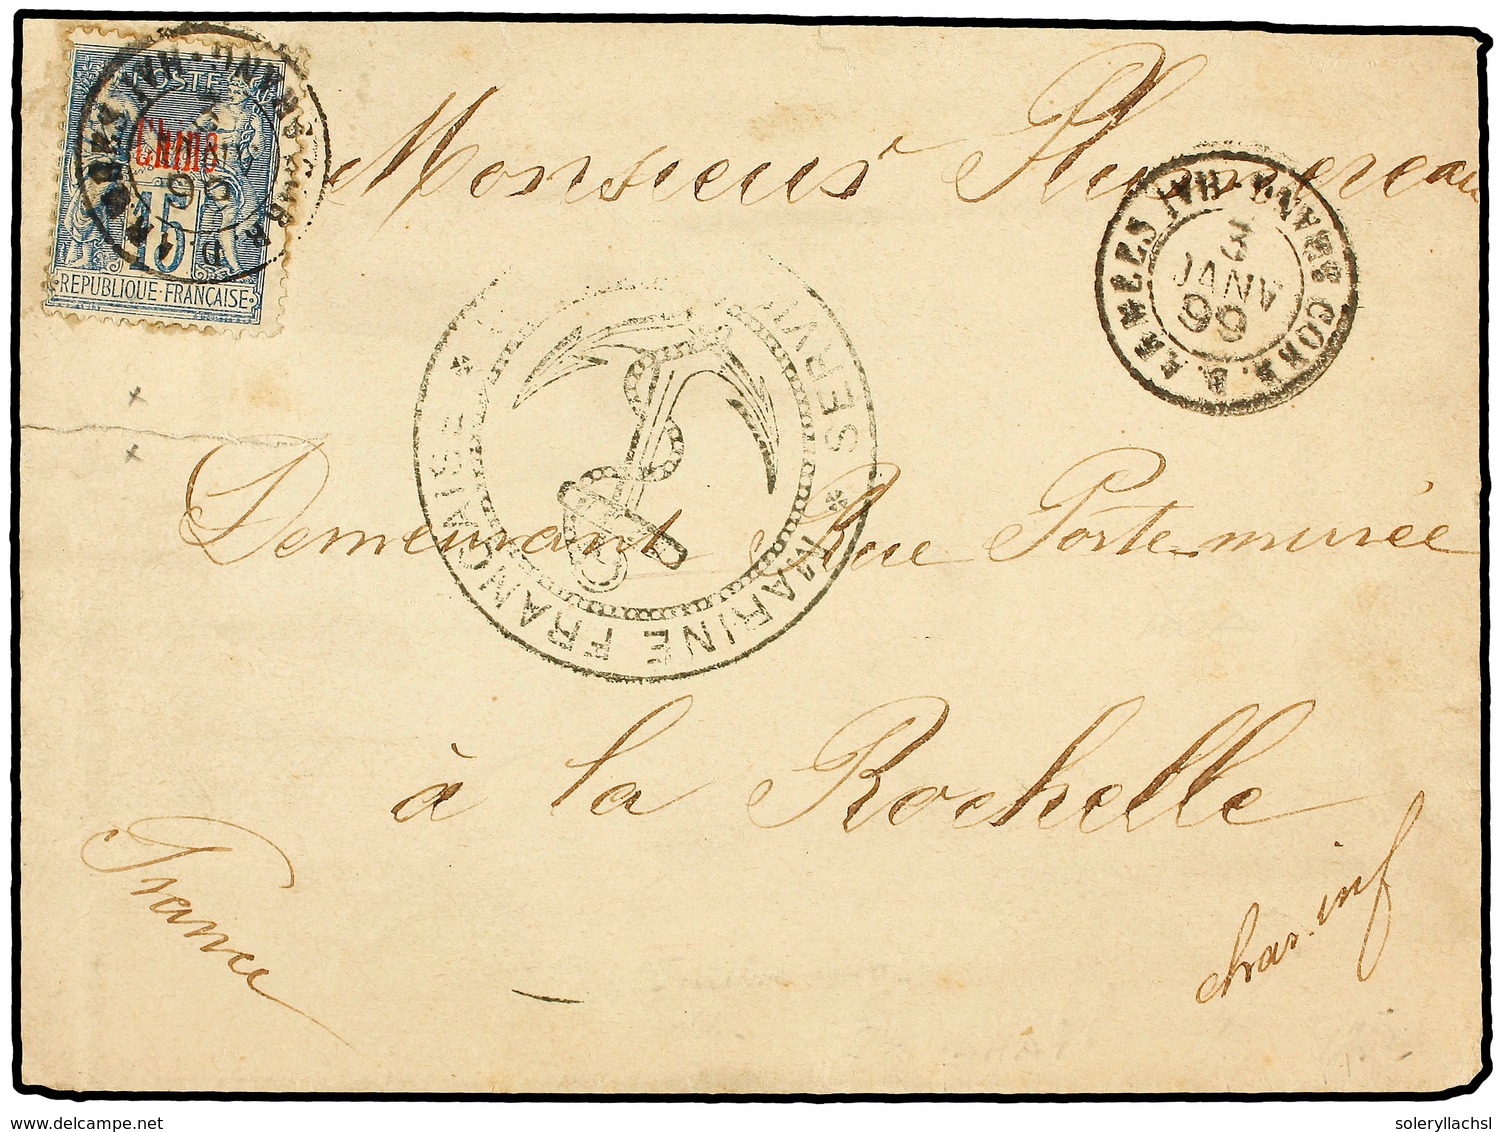 POSTE
Chine
15
REPUBLIQUE FRANÇAISE
Monsieur Plumereau
CORR. D. ARMÉES
3
JANV
99
MARINE FRANCAISE * SERVI
Demeurant Rue Porte murée
à la Rochelle
France
char. inf
soleryllachsl